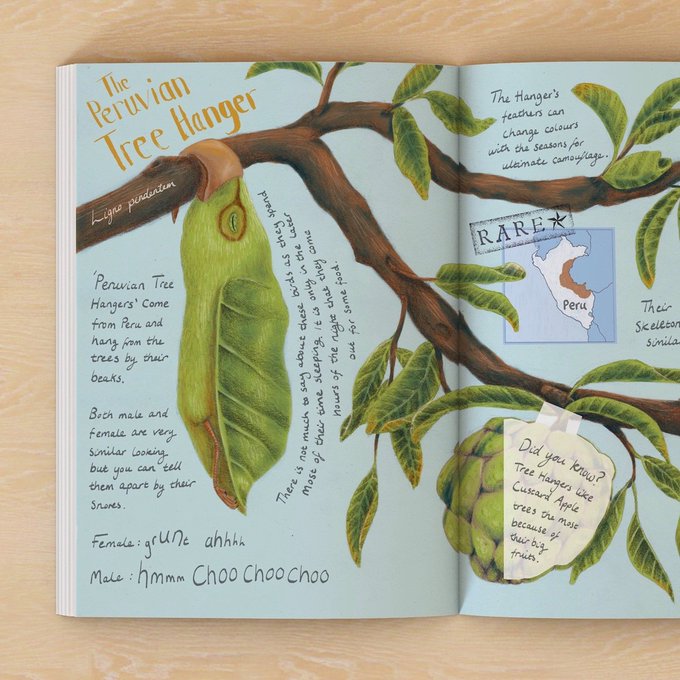 The
Peruvian
Tree Hanger
Ligno pendentem
'Peruvian Tree
Hangers' Come
from Peru and
hang from the
trees by their
beaks.
Both male and
female are very
similar looking
but you can tell
them apart by their
Snores.
Female: grUNt ahhhh
Male: hmmm Choo Choo Choo
There is not much to say about these birds as they spend
most of their time sleeping, it is only in the later
hours of the night that they come
out for some food.
The Hanger's
feathers can
change colours
with the seasons for
ultimate camouflage.
RARE
Peru
Their
Skeleton
simila
Did you know?
Tree Hangers like
Custard Apple
trees the most
because of
their big
fruits.